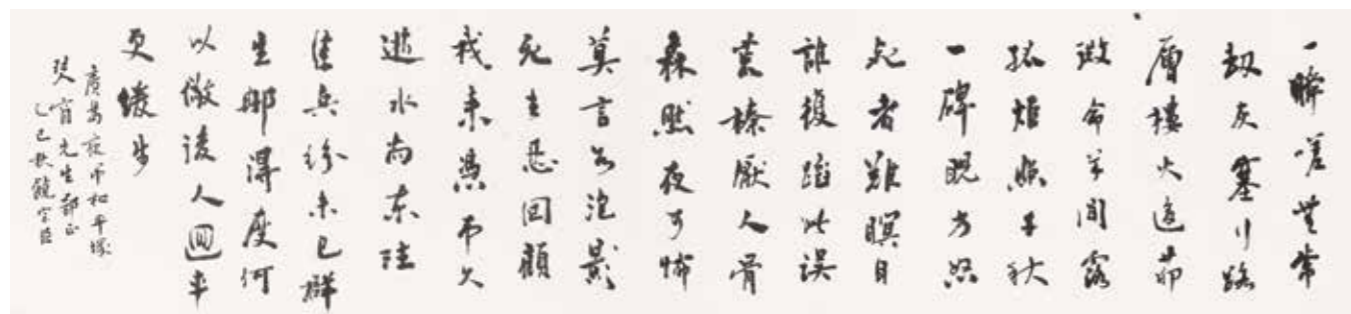 一瞬嗟無常
劫灰塞行路
層樓火邊茆
微命草間露
孤炬照千秋
一碑
死者難瞑目
誰復蹈此誤
叢榛厭人骨
森然夜可怖
莫言如泡影
死生忍回顧
我來憑弔久
逝水向東注
佳兵紛未已群
生那得度何
以儆後人迴車
更緩步
廣島夜弔和平塚
先生郢正
乙巳秋饒宗頤